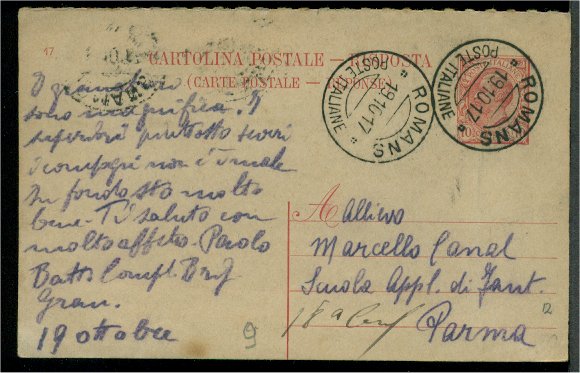 17
CARTOLINA POSTALE - RISPOSTA
(CARTE POSTALE - RÉPONSE)
ROMANS
POSTE ITALIANE
19.10.17
ROMANS
POSTE ITALIANE
19.10.17
I granatieri
sono magnifici. I
superiori piuttosto severi
non c'è male
In fondo sto molto
bene. Ti saluto con
molto affetto. Paolo
Batt. Compl. Brig.
Gran.
19 ottobre
9
A Allievo
Marcello Canal
Scuola Appl. di Fant.
18a
Parma
12